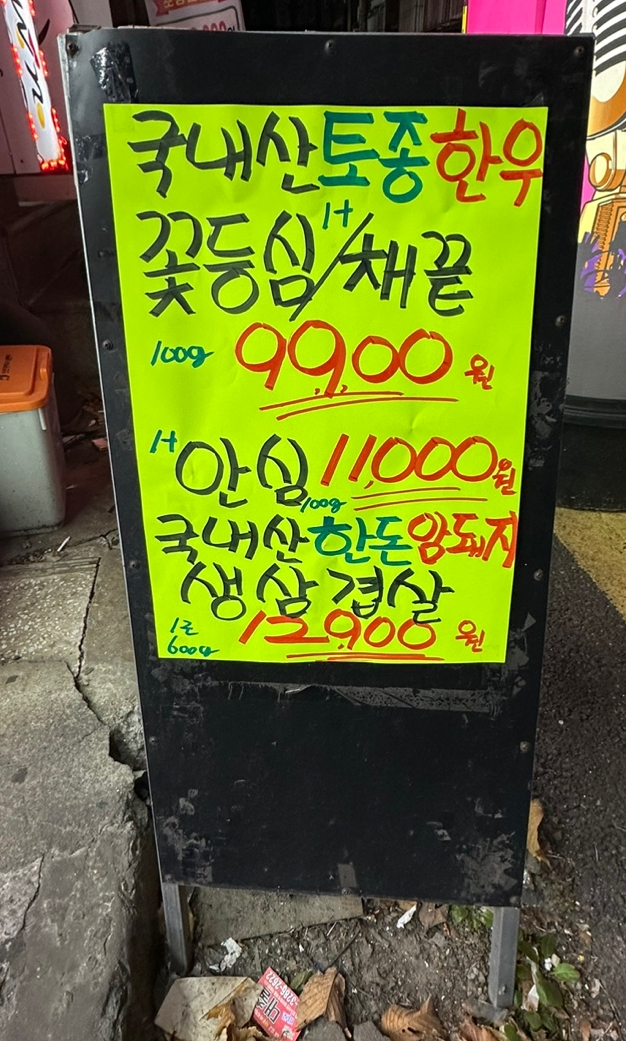 국내산토종한우
꽃등심 1+/채끝
100g 9,900원
1+ 안심 11,000원
100g
국내산한돈암돼지
생삼겹살
1근 600g 12,900원